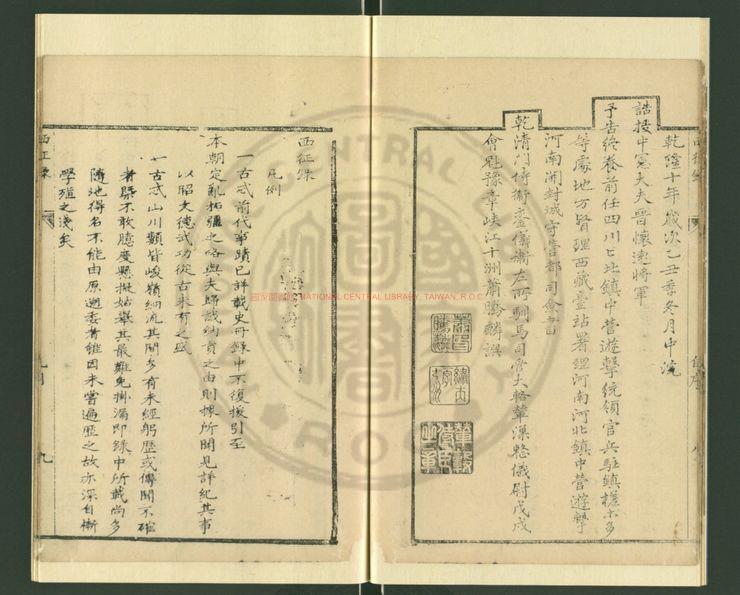 乾隆十年歲次乙丑季冬月中浣
誥授中憲大夫晉懷遠將軍
予告終養前任四川七北鎮中營遊擊統領官兵駐鎮擦木多
等處地方督理西藏臺站署理河南河北鎮中營遊擊
河南開封城守營都司僉書
乾清門侍衛鑾儀衛左所馴馬司管大輅輦事整儀尉戊戌
會魁豫章峽江十洲蕭騰麟譔
西征錄
凡例
一古或前代事蹟已詳載史冊錄中不復援引至
本朝定亂拓疆之略與夫歸誠納貢之由則據所聞見詳紀其事
以昭文德武功從古未有之盛
一古或山川類皆峻嶺細流其間多有未經躬歷或傳聞不確
者槩不敢臆度懸擬姑舉其最難免掛漏即錄中所載尚多
隨地得名不能由原遡委者雖因未嘗遍歷之故亦深自慚
學殖之淺矣
西征錄
凡例
九
國家圖書館 NATIONAL CENTRAL LIBRARY, TAIWAN, R.O.C